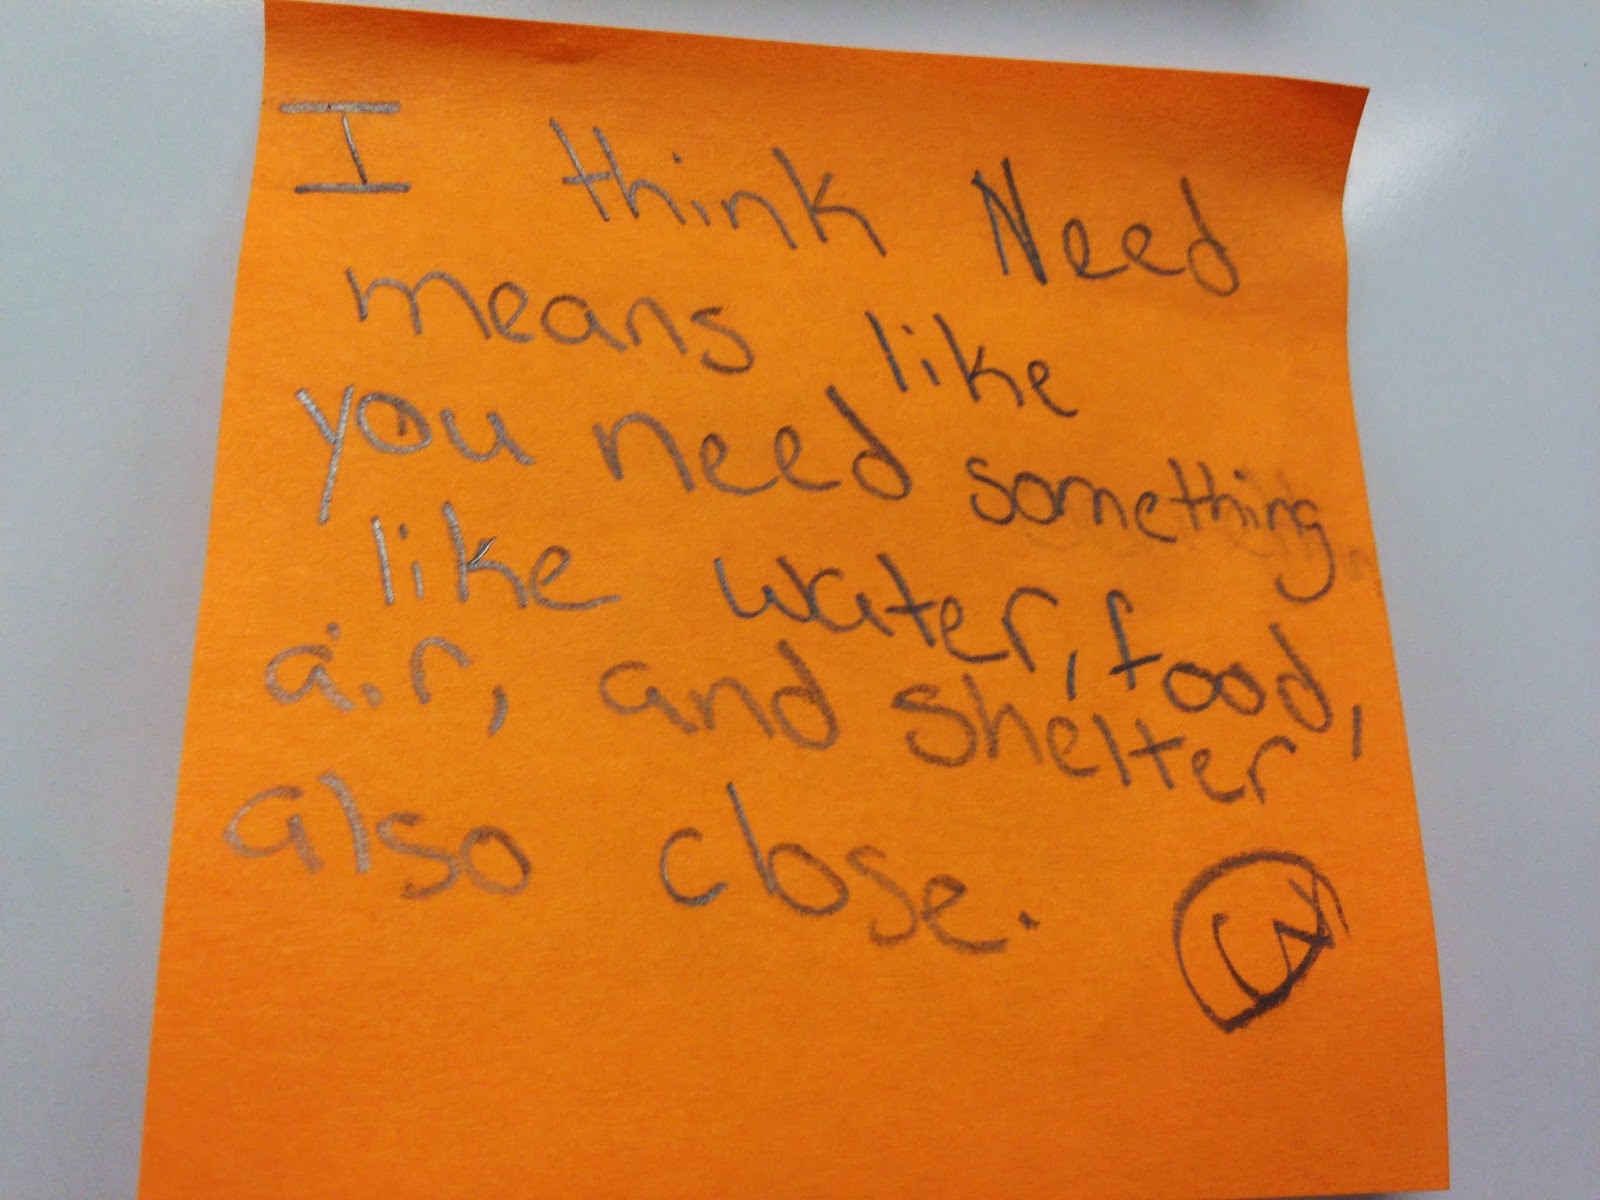 I think Need
means like
you need something
like water, food,
air, and shelter
also close.